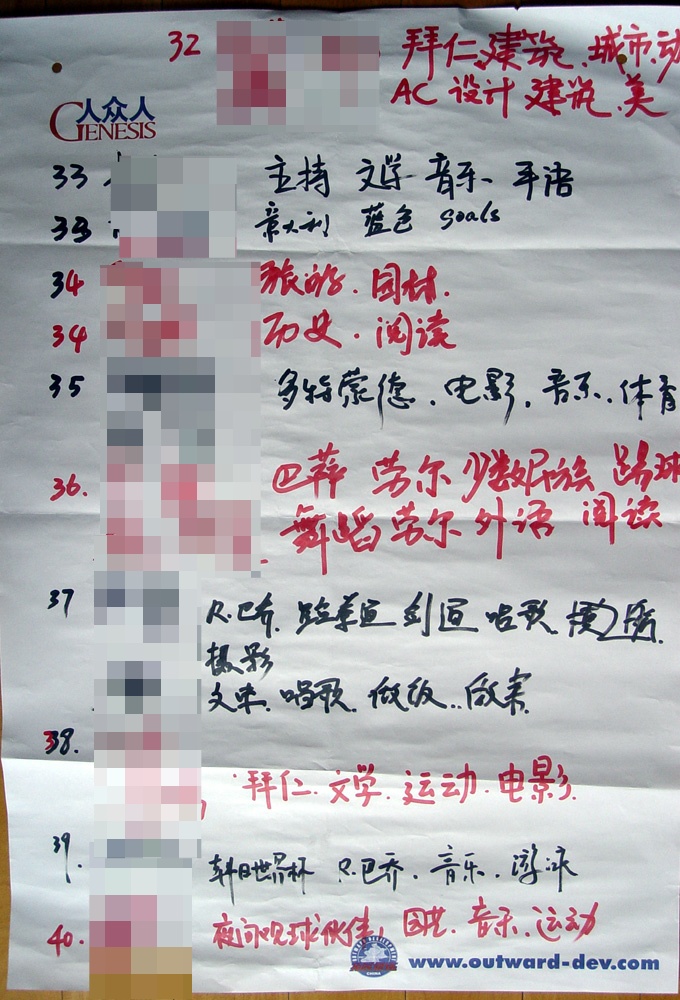 32 拜仁.建筑.城市.动
AC 设计 建筑.美
人众人
GENESIS
33 主持 文学 音乐 手语
33 意大利 蓝色 goals
34 旅游. 园林.
34 历史. 阅读
35 多特蒙德. 电影. 音乐. 体育
36. 巴萨 劳尔 少数民族 踢球
舞蹈 劳尔 外语 阅读
37 R.巴乔. 跆拳道 剑道 唱歌.
摄影
唱歌. 做饭..
38.
拜仁. 文学. 运动. 电影.
39. 韩日世界杯 R.巴乔. 音乐. 游泳
40. 夜间观球伙伴, 园艺. 音乐. 运动
CHINA
www.outward-dev.com